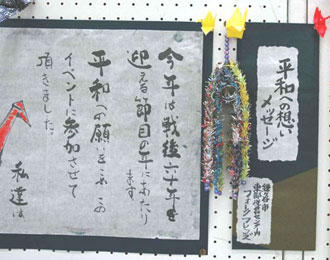 平和への想い
メッセージ
鎌ケ谷市
東部学習センター内
フォトフレンズ
今年は戦後六十年を
迎える節目の年にあたり
ます
平和への願いをこめこの
イベントに参加させて
頂きました。
私達は